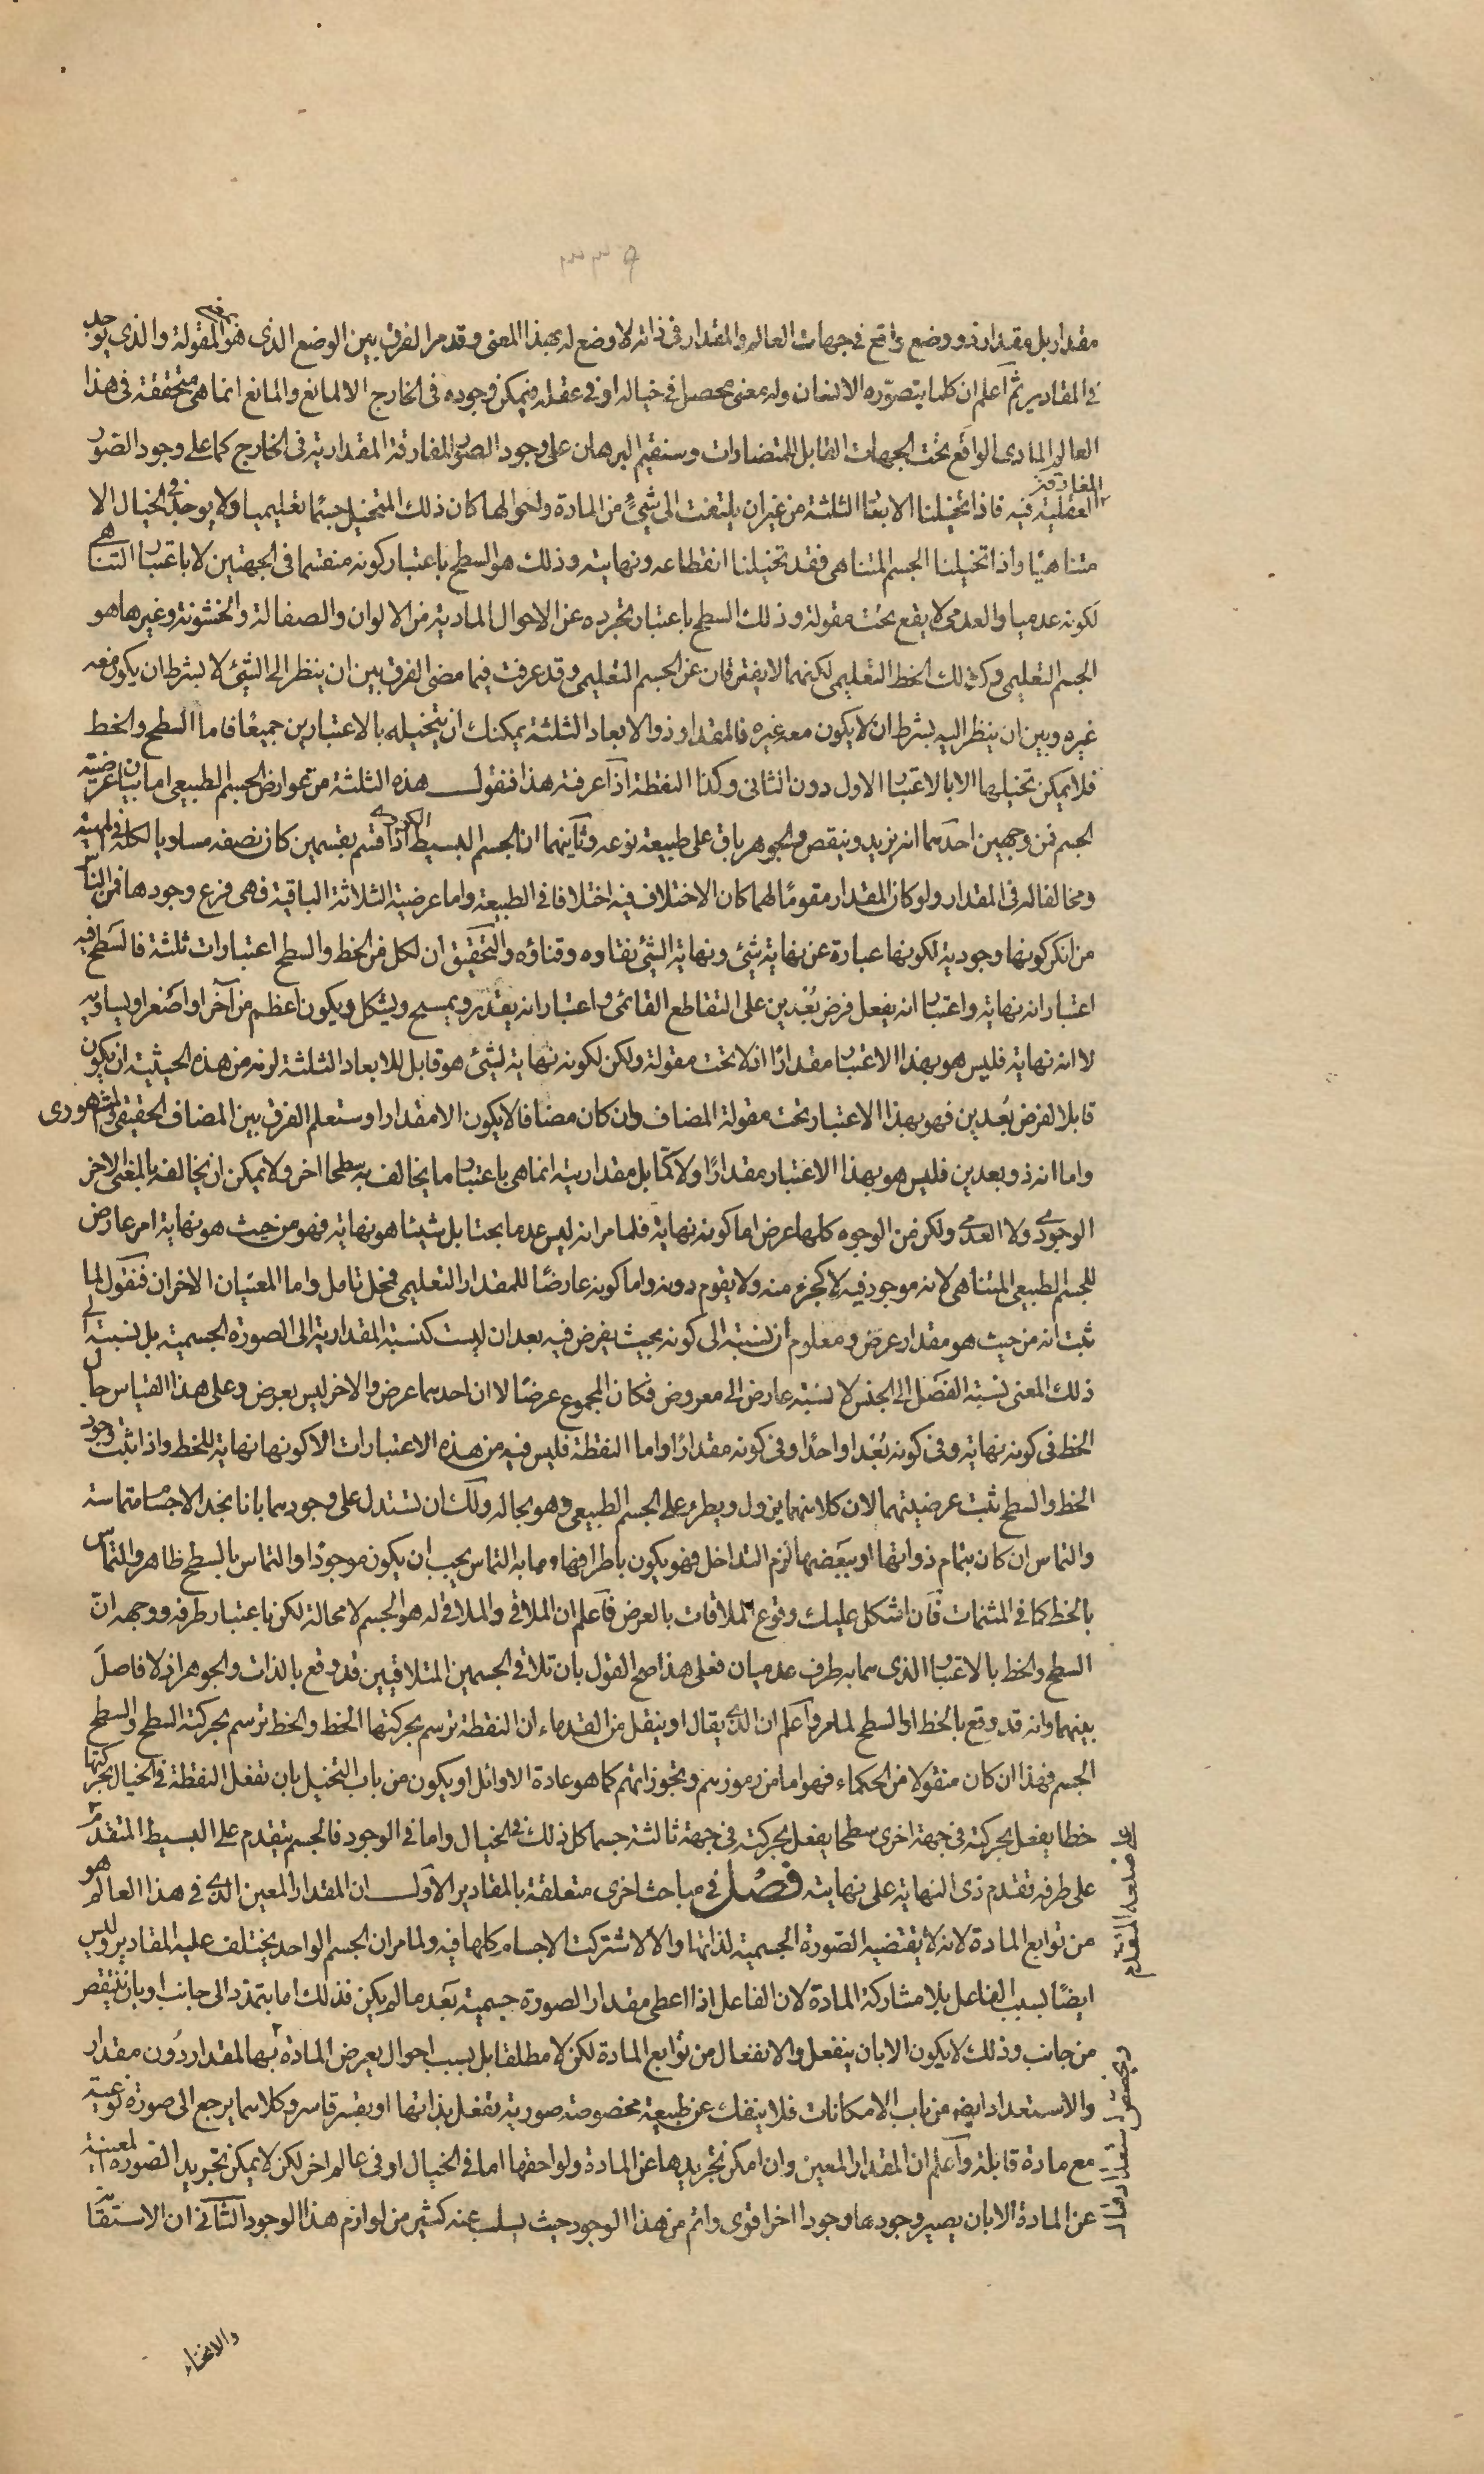 ٣٣٩
مقدار بل مقدار ذو وضع واقع في جهات العالم والمقدار في ذاته لا وضع له بهذا المعنى وقد مر الفرق بين الوضع الذى هو المقولة والذى يوجد
في المقادير ثم اعلم ان كلما يتصوره الانسان وله معنى محصل في خياله او في عقله فيمكن وجوده في الخارج الا لمانع والمانع انما هى متحققة في هذا
العالم المادى الواقع تحت الجهات القابل للمتضادات وسنقيم البرهان على وجود الصور المفارقة المقدارية في الخارج كما على وجود الصور
المفارقة
العقلية فيه فاذا تخيلنا الابعاد الثلثة من غير ان يلتفت الى شئ من المادة واحوالها كان ذلك المتخيل جسما تعليميا ولا يوجد في الخيال الا
متناهيا واذا تخيلنا الجسم المتناهى فقد تخيلنا انقطاعه ونهايته وذلك هو السطح باعتبار كونه منقسما في الجهتين لا باعتبار التناهى
لكونه عدميا والعدمى لا يقع تحت مقولة وذلك السطح باعتبار تجرده عن الاحوال المادية من الالوان والصقالة والخشونة وغيرها هو
الجسم التعليمى وكذلك الخط التعليمى لكنهما لا يفترقان عن الجسم التعليمى وقد عرفت فيما مضى الفرق بين ان ينظر الى الشئ لا بشرط ان يكون معه
غيره وبين ان ينظر اليه بشرط ان لا يكون معه غيره فالمقدار ذو الابعاد الثلثة يمكنك ان يتخيله بالاعتبارين جميعا فاما السطح والخط
فلا يمكن تخيلها الا بالاعتبار الاول دون الثانى وكذا النقطة اذا عرفت هذا فنقول هذه الثلثة من عوارض الجسم الطبيعى اما بيان عرضية
الجسم فمن وجهين احدهما انه يزيد وينقص والجوهر باق على طبيعة نوعه وثانيهما ان الجسم البسيط الكروى اذا قسم بقسمين كان نصفه مساويا لكله في المهية
ومخالفا له في المقدار ولو كان المقدار مقوما لهما كان الاختلاف فيه اختلافا في الطبيعة واما عرضية الثلاثة الباقية فهى فرع وجودها فمن الناس
من انكر كونها وجودية لكونها عبارة عن نهاية شئ ونهاية الشئ نفاده وفناؤه والتحقيق ان لكل من الخط والسطح اعتبارات ثلثة فالسطح فيه
اعتبار انه نهاية واعتبار انه يفعل فرض بعدين على التقاطع القائمى واعتبار انه يقدر ويمسح ويشكل ويكون اعظم من آخر او اصغر او يساويه
لا انه نهاية فليس هو بهذا الاعتبار مقدارا اذ لا تحت مقولة ولكن لكونه نهاية لشئ هو قابل للابعاد الثلثة لزمه من هذه الحيثية ان يكون
قابلا لفرض بعدين فهو بهذا الاعتبار تحت مقولة المضاف وان كان مضافا لا يكون الا مقدارا وستعلم الفرق بين المضاف الحقيقى والمشهورى
واما انه ذو بعدين فليس هو بهذا الاعتبار مقدارا ولا كما بل مقداريته انما هى باعتبار ما يخالف به سطحا اخر ولا يمكن ان يخالفه بالمعنى الاخر
الوجودى ولا العدمى ولكن من الوجوه كلها عرض اما كونه نهاية فلما مر انه ليس عدما بحتا بل شيئا هو نهاية فهو من حيث هو نهاية امر عارض
للجسم الطبيعى المتناهى لانه موجود فيه لا كجزء منه ولا يقوم دونه واما كونه عارضا للمقدار التعليمى فمحل تامل واما المعنيان الاخران فنقول لما
ثبت انه من حيث هو مقدار عرض ومعلوم ان نسبته الى كونه بحيث يفرض فيه بعدان ليست كنسبة المقدارية الى الصورة الجسمية بل نسبته الى
ذلك المعنى نسبة الفصل الى الجنس لا نسبة عارض الى معروض فكان المجموع عرضا لا ان احدهما عرض والاخر ليس بعرض وعلى هذا القياس حال
الخط في كونه نهاية وفي كونه بعدا واحدا وفي كونه مقدارا واما النقطة فليس فيه من هذه الاعتبارات الا كونها نهاية للخط واذا ثبت وجود
الخط والسطح ثبت عرضيتهما لان كلا منهما يزول ويطرء على الجسم الطبيعى وهو بحاله ولك ان تستدل على وجودهما بانا نجد الاجسام متماسة
والتماس ان كان بتمام ذواتها او ببعضها لزم التداخل فهو يكون باطرافها وما به التماس يجب ان يكون موجودا والتماس بالسطح ظاهر والتماس
بالخط كما في المثمنات فان اشكل عليك وقوع الملاقات بالعرض فاعلم ان الملاقى والملاقى له هو الجسم لا محالة لكن باعتبار طرفه ووجهه ان
السطح والخط بالاعتبار الذى هما به طرف عدميان فعلى هذا صح القول بان تلاقى الجسمين المتلاقيين قد وقع بالذات والجوهر اذ لا فاصل
بينهما وانه قد وقع بالخط او السطح لما مر واعلم ان الذى يقال او ينقل من القدماء ان النقطة ترسم بحركتها الخط والخط ترسم بحركته السطح والسطح
الجسم فهذا ان كان منقولا من الحكماء فهو اما من رموزهم وتجوزاتهم كما هو عادة الاوائل او يكون من باب التخيل بان تفعل النقطة في الخيال بحركتها
خطا يفعل بحركته في جهة اخرى سطحا يفعل بحركته في جهة ثالثة جسما كل ذلك في الخيال واما في الوجود فالجسم يتقدم على البسيط المتقدم
على طرفه تقدم ذى النهاية على نهايته فصل في مباحث اخرى متعلقة بالمقادير الاول ان المقدار المعين الذى في هذا العالم هو
من توابع المادة لانه لا يقتضيه الصورة الجسمية لذاتها والا لاشتركت الاجسام كلها فيه ولما مر ان الجسم الواحد يختلف عليه المقادير وليس
ايضا بسبب الفاعل بلا مشاركة المادة لان الفاعل اذا اعطى مقدار الصورة جسمية بعد ما لم يكن فذلك اما بتمدد الى جانب او بان ينتقص
من جانب وذلك لا يكون الا بان ينفعل والانفعال من توابع المادة لكن لا مطلقا بل بسبب احوال يعرض المادة بها لمقدار دون مقدار
والاستعداد ايضا من باب الامكانات فلا ينفك عن طبيعة مخصوصة صورية تفعل بذاتها او بقسر قاسر وكلاهما يرجع الى صورة نوعية
مع مادة قابلة واعلم ان المقدار المعين وان امكن تجريدها عن المادة ولواحقها اما في الخيال او في عالم اخر لكن لا يمكن تجريد الصورة المعينة
عن المادة الا بان يصير وجودها وجودا اخر اقوى واتم من هذا الوجود حيث يسلب عنه كثير من لوازم هذا الوجود الثانى ان الاستقامة
والانحناء